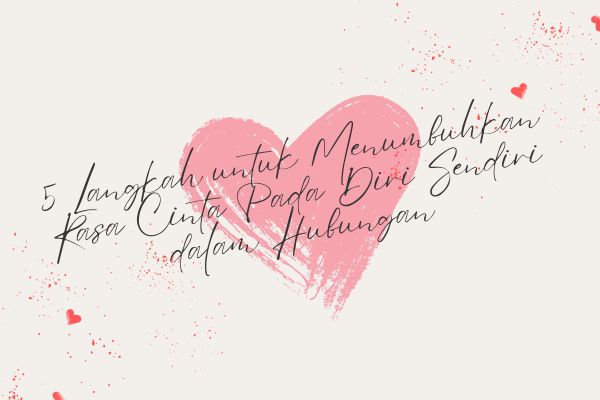 5 Langkah untuk Menumbuhkan
Rasa Cinta Pada Diri Sendiri
dalam Hubungan